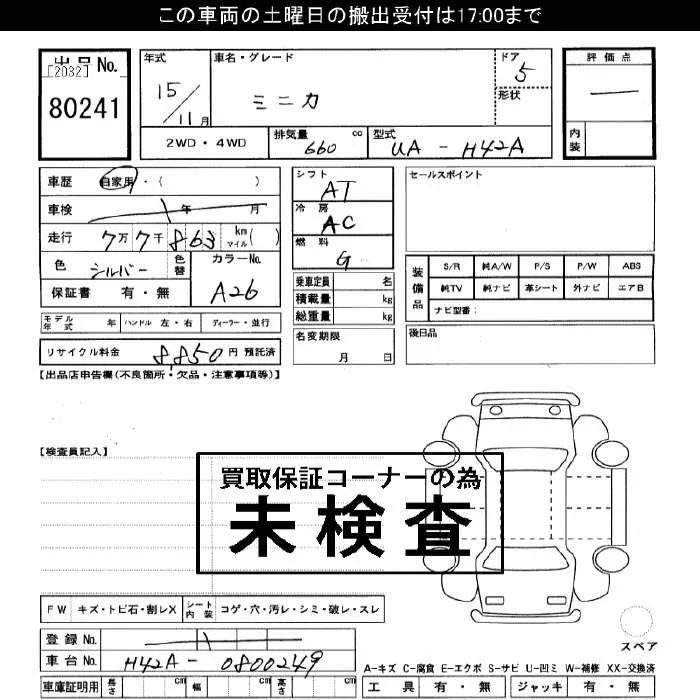 この車両の土曜日の搬出受付は17:00まで
出品No.
[2032]
80241
年式
15/11月
車名・グレード
ミニカ
ドア
5
形状
評価点
―
内装
2WD・4WD
排気量 660 cc
型式 UA-H42A
車歴 自家用・( )
車検 年 月
走行 7万7千863 km マイル( )
色 シルバー 色替
カラーNo. A26
保証書 有・無
モデル年式 年 ハンドル 左・右 ディーラー・並行
リサイクル料金 8,850円 預託済
シフト AT
冷房 AC
燃料 G
乗車定員 名
積載量 kg
総重量 kg
名変期限
月 日
セールスポイント
装備品
S/R 純A/W P/S P/W ABS
純TV 純ナビ 革シート 外ナビ エアB
ナビ型番:
後日品
【出品店申告欄(不良箇所・欠品・注意事項等)】
【検査員記入】
買取保証コーナーの為
未検査
FW キズ・トビ石・割レX
シート内装 コゲ・穴・汚レ・シミ・破レ・スレ
登録No.
車台No. H42A-0800249
車庫証明用 長さ cm 幅 cm 高さ cm
スペア
A-キズ C-腐食 E-エクボ S-サビ U-凹ミ W-補修 XX-交換済
工具 有・無 ジャッキ 有・無